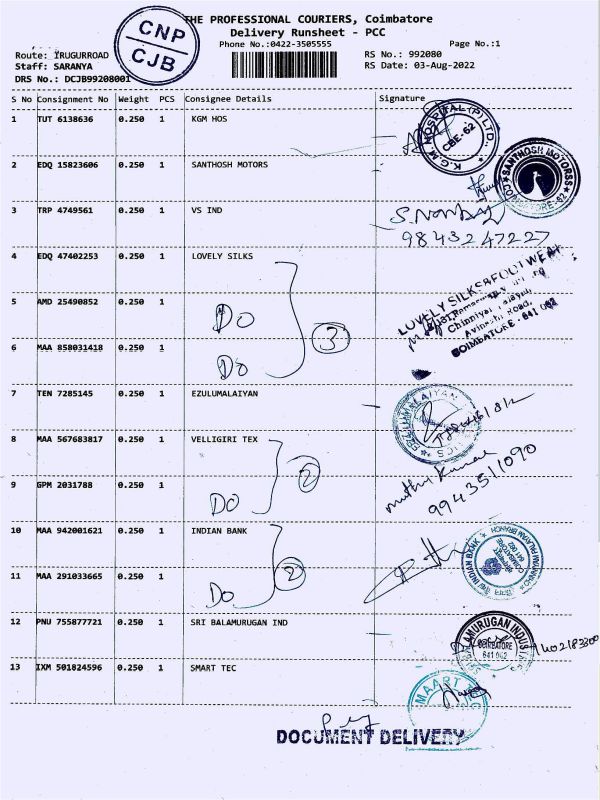 THE PROFESSIONAL COURIERS, Coimbatore
Delivery Runsheet - PCC
Phone No.:0422-3505555
Page No.:1
CNP
CJB
Route: IRUGURROAD
Staff: SARANYA
DRS No.: DCJB99208001
RS No.: 992080
RS Date: 03-Aug-2022
S No Consignment No Weight PCS Consignee Details Signature
1 TUT 6138636 0.250 1 KGM HOS
K.G.M HOSPITAL (P) LTD.. CBE-62
2 EDQ 15823606 0.250 1 SANTHOSH MOTORS
SANTHOSH MOTORSS COIMBATORE-62
3 TRP 4749561 0.250 1 VS IND
9843247227
4 EDQ 47402253 0.250 1 LOVELY SILKS
LOVELY SILKS&FOOTWEAR
Chinniyampalayam,
Avinashi Road,
COIMBATORE - 641 062
5 AMD 25490852 0.250 1 DO
3
6 MAA 858031418 0.250 1 Do
7 TEN 7285145 0.250 1 EZULUMALAIYAN
8 MAA 567683817 0.250 1 VELLIGIRI TEX
muthu Kumar
9943511090
2
9 GPM 2031788 0.250 1 DO
10 MAA 942001621 0.250 1 INDIAN BANK
INDIAN BANK
COIMBATORE
641 062
2
11 MAA 291033665 0.250 1 Do
12 PNU 755877721 0.250 1 SRI BALAMURUGAN IND
COIMBATORE
641 062
13 IXM 501824596 0.250 1 SMART TEC
DOCUMENT DELIVERY